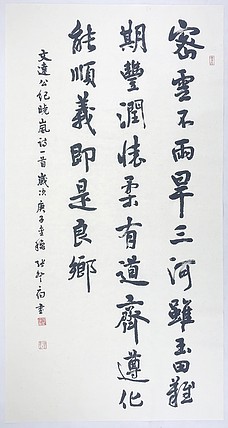 密雲不雨旱三河雖玉田難
期豐潤懷柔有道齊遵化
能順義即是良鄉
文達公紀晓嵐诗一首歲次庚子書